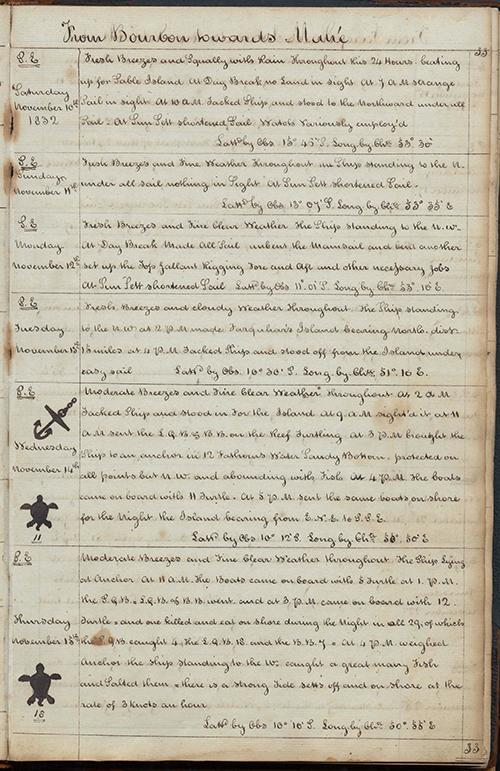 From Bourbon towards Mahé
33
S.E Fresh Breezes and Squally with Rain Throughout this 24 Hours. beating
Saturday up for Sable Island. At Day Break no Land in sight. At 7 A.M strange
November 10th Sail in sight. At 10 A.M. Tacked Ship and stood to the Northward under all
1832 Sail. At Sun Sett shortened Sail. Watch Variously employ'd
Latd by Obs 15° 45' S. Long by Chr. 53° 30'
S.E Fresh Breezes and Fine Weather Throughout. The Ship standing to the N.
Sunday under all sail nothing in Sight. At Sun Sett shortened Sail.
November 11th
Latd by Obs 13° 07' S. Long by Chr. 53° 55' E
S.E Fresh Breezes and Fine Clear Weather The Ship standing to the N.W.
Monday At Day Break Made All Sail. unbent the Mainsail and bent another
November 12th set up the Top Gallant Rigging Fore and Aft and other necessary jobs
At Sun Sett shortened Sail Latd by Obs 11° 01' S. Long by Chr. 53° 10' E.
S.E Fresh Breezes and cloudy Weather Throughout. The Ship standing
Tuesday to the N.W. at 2 P.M made Farquhar's Island bearing North. dist.
November 13th 15 miles. at 4 P.M Tacked Ship and stood off from the Island under
easy sail Latd by Obs 10° 30' S. Long. by Chr. 51° 10' E.
S.E Moderate Breezes and Fine Clear Weather Throughout At 2 A.M
Tacked Ship and stood in For the Island At 9 A.M sight'd it, at 11
Wednesday A.M sent the L.Q.B. & B.B. on the Reef Turtling. At 3 P.M brought the
November 14th Ship to an anchor in 12 Fathoms Water Sandy Bottom. protected on
all points but N.W. and abounding with Fish. At 4 P.M. the boats
came on board with 11 Turtle. At 5 P.M. sent the same boats on shore
11 for the Night the Island bearing from E.N.E. to S.S.E.
Latd by Obs 10° 12' S. Long by Chr. 50° 50' E
S.E Moderate Breezes and Fine Clear Weather throughout. The Ship Lying
at Anchor. At 11 A.M. The Boats came on board with 5 Turtle at 1. P.M.
the S.Q.B. L.Q.B. & B.B. went and at 3 P.M. came on board with 12.
Thursday Turtle. and one killed and eat on shore during the Night in all 29. of which
November 15th the S.Q.B caught 4. the L.Q.B. 18. and the B.B. 7. At 4 P.M. weighed
Anchor the ship standing to the W. caught a great many Fish
and Salted them. there is a strong Tide setts off and on Shore at the
18 rate of 3 knots an hour
Latd by Obs 10° 10' S. Long by Chr. 50° 55' E
33